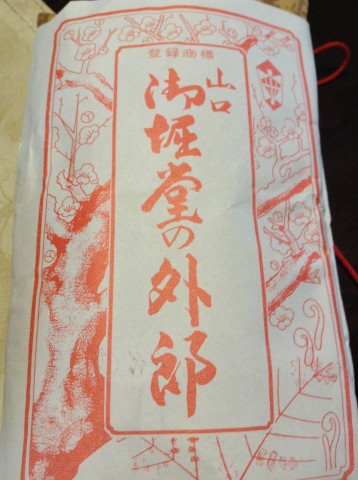 登録商標
山口
御堀堂の外郎